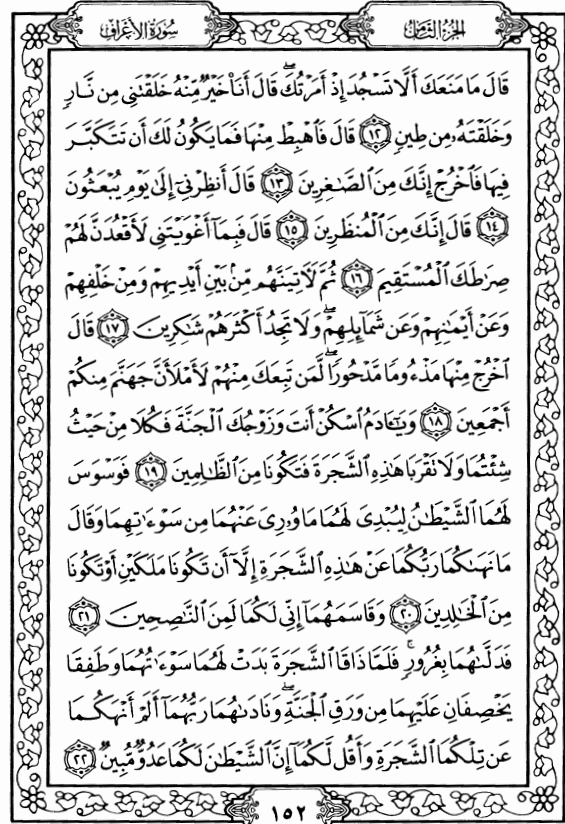 سُورَةُ الأَعْرَافِ الجُزْءُ الثَّامِنُ
قَالَ مَا مَنَعَكَ أَلَّا تَسْجُدَ إِذْ أَمَرْتُكَ ۖ قَالَ أَنَا۠ خَيْرٌ مِّنْهُ خَلَقْتَنِي مِن نَّارٍ
وَخَلَقْتَهُۥ مِن طِينٍ ١٢ قَالَ فَٱهْبِطْ مِنْهَا فَمَا يَكُونُ لَكَ أَن تَتَكَبَّرَ
فِيهَا فَٱخْرُجْ إِنَّكَ مِنَ ٱلصَّٰغِرِينَ ١٣ قَالَ أَنظِرْنِيٓ إِلَىٰ يَوْمِ يُبْعَثُونَ
١٤ قَالَ إِنَّكَ مِنَ ٱلْمُنظَرِينَ ١٥ قَالَ فَبِمَآ أَغْوَيْتَنِي لَأَقْعُدَنَّ لَهُمْ
صِرَٰطَكَ ٱلْمُسْتَقِيمَ ١٦ ثُمَّ لَأٓتِيَنَّهُم مِّنۢ بَيْنِ أَيْدِيهِمْ وَمِنْ خَلْفِهِمْ
وَعَنْ أَيْمَٰنِهِمْ وَعَن شَمَآئِلِهِمْ ۖ وَلَا تَجِدُ أَكْثَرَهُمْ شَٰكِرِينَ ١٧ قَالَ
ٱخْرُجْ مِنْهَا مَذْءُومًا مَّدْحُورًا ۖ لَّمَن تَبِعَكَ مِنْهُمْ لَأَمْلَأَنَّ جَهَنَّمَ مِنكُمْ
أَجْمَعِينَ ١٨ وَيَٰٓـَٔادَمُ ٱسْكُنْ أَنتَ وَزَوْجُكَ ٱلْجَنَّةَ فَكُلَا مِنْ حَيْثُ
شِئْتُمَا وَلَا تَقْرَبَا هَٰذِهِ ٱلشَّجَرَةَ فَتَكُونَا مِنَ ٱلظَّٰلِمِينَ ١٩ فَوَسْوَسَ
لَهُمَا ٱلشَّيْطَٰنُ لِيُبْدِيَ لَهُمَا مَا وُۥرِيَ عَنْهُمَا مِن سَوْءَٰتِهِمَا وَقَالَ
مَا نَهَىٰكُمَا رَبُّكُمَا عَنْ هَٰذِهِ ٱلشَّجَرَةِ إِلَّآ أَن تَكُونَا مَلَكَيْنِ أَوْ تَكُونَا
مِنَ ٱلْخَٰلِدِينَ ٢٠ وَقَاسَمَهُمَآ إِنِّي لَكُمَا لَمِنَ ٱلنَّٰصِحِينَ ٢١
فَدَلَّىٰهُمَا بِغُرُورٍ ۚ فَلَمَّا ذَاقَا ٱلشَّجَرَةَ بَدَتْ لَهُمَا سَوْءَٰتُهُمَا وَطَفِقَا
يَخْصِفَانِ عَلَيْهِمَا مِن وَرَقِ ٱلْجَنَّةِ ۖ وَنَادَىٰهُمَا رَبُّهُمَآ أَلَمْ أَنْهَكُمَا
عَن تِلْكُمَا ٱلشَّجَرَةِ وَأَقُل لَّكُمَآ إِنَّ ٱلشَّيْطَٰنَ لَكُمَا عَدُوٌّ مُّبِينٌ ٢٢
١٥٢